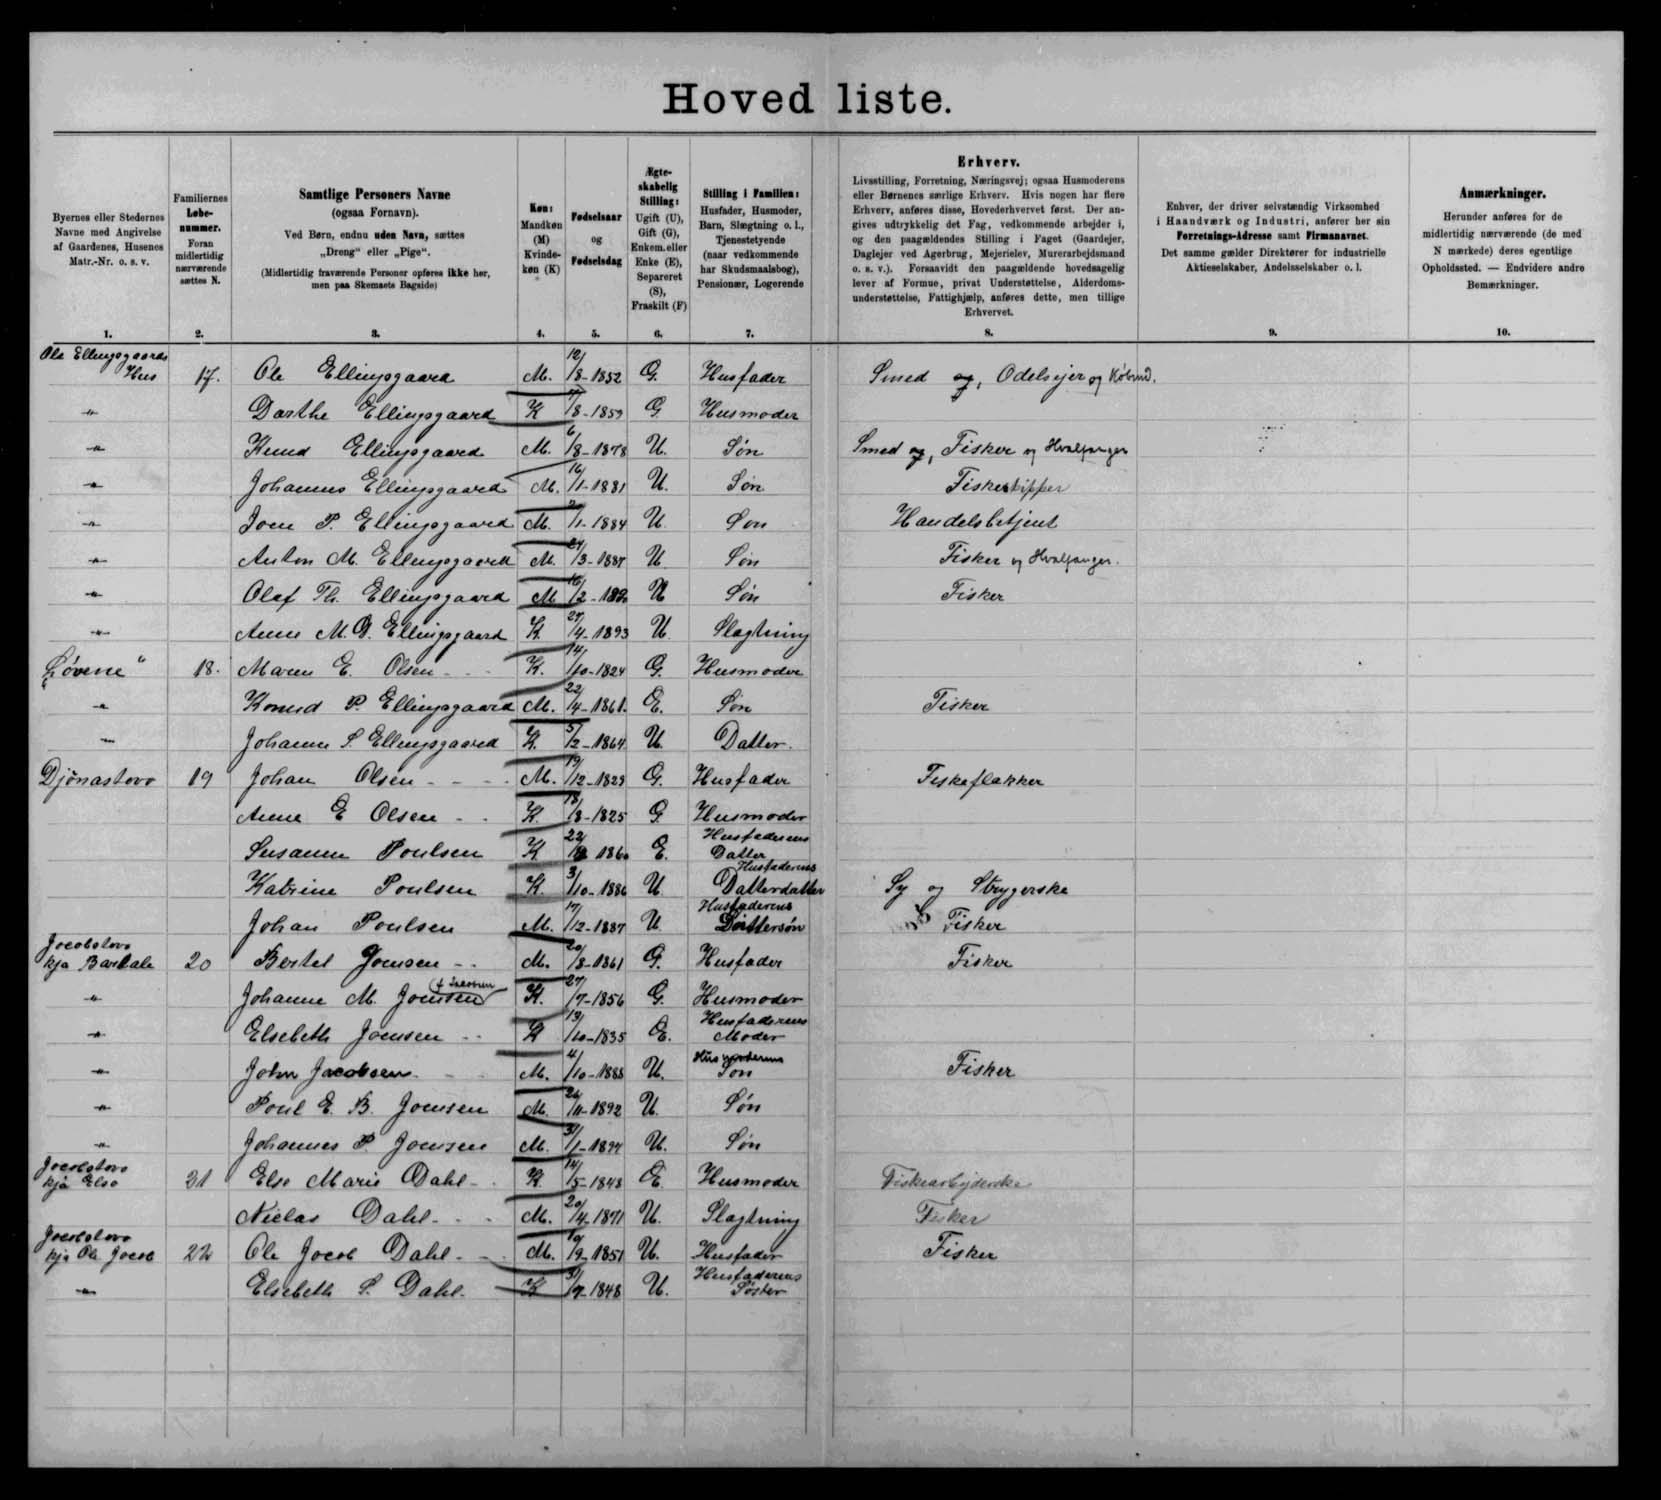 Hoved liste.
Byernes eller Stedernes
Navne med Angivelse
af Gaardenes, Husenes
Matr.-Nr. o. s. v.
1.
Familiernes
Løbe-
nummer.
Foran
midlertidig
nærværende
sættes N.
2.
Samtlige Personers Navne
(ogsaa Fornavn).
Ved Børn, endnu uden Navn, sættes
„Dreng“ eller „Pige“.
(Midlertidig fraværende Personer opføres ikke her,
men paa Skemaets Bagside)
3.
Køn:
Mandkøn
(M)
Kvinde-
køn (K)
4.
Fødselsaar
og
Fødselsdag
5.
Ægte-
skabelig
Stilling:
Ugift (U),
Gift (G),
Enkem.eller
Enke (E),
Separeret
(S),
Fraskilt (F)
6.
Stilling i Familien:
Husfader, Husmoder,
Barn, Slægtning o. l.,
Tjenestetyende
(naar vedkommende
har Skudsmaalsbog),
Pensionær, Logerende
7.
Erhverv.
Livsstilling, Forretning, Næringsvej; ogsaa Husmoderens
eller Børnenes særlige Erhverv. Hvis nogen har flere
Erhverv, anføres disse, Hovederhvervet først. Der an-
gives udtrykkelig det Fag, vedkommende arbejder i,
og den paagældendes Stilling i Faget (Gaardejer,
Daglejer ved Agerbrug, Mejerielev, Murerarbejdsmand
o. s. v.). Forsaavidt den paagældende hovedsagelig
lever af Formue, privat Understøttelse, Alderdoms-
understøttelse, Fattighjælp, anføres dette, men tillige
Erhvervet.
8.
Enhver, der driver selvstændig Virksomhed
i Haandværk og Industri, anfører her sin
Forretnings-Adresse samt Firmanavnet.
Det samme gælder Direktører for industrielle
Aktieselskaber, Andelsselskaber o. l.
9.
Anmærkninger.
Herunder anføres for de
midlertidig nærværende (de med
N mærkede) deres egentlige
Opholdssted. — Endvidere andre
Bemærkninger.
10.
Ole Ellingsgaards
Hus 17. Ole Ellingsgaard M. 12/8-1852 G. Husfader Smed og, Odelsejer og Købmd.
-"- Dorthe Ellingsgaard K /8-1859 G Husmoder
-"- Knud Ellingsgaard M. 6/8-1878 U. Søn Smed og, Fisker og Hvalfanger
-"- Johannes Ellingsgaard M. 16/1-1881 U. Søn Fiskeskipper
-"- Joen P. Ellingsgaard M. /1-1884 U. Søn Handelsbetjent
-"- Anton M. Ellingsgaard M. 24/3-1887 U Søn Fisker og Hvalfanger.
-"- Olaf Th. Ellingsgaard M 16/2-1890 U Søn Fisker
-"- Anne M. D. Ellingsgaard K. 27/4-1893 U. Slægtning
„Løvene“ 18. Maren E. Olsen K. 14/10-1824 G. Husmoder
-"- Konud P. Ellingsgaard M. 22/4-1861. E. Søn Fisker
-"- Johanne S. Ellingsgaard K. 5/2-1864. U. Datter.
Djónastovo 19 Johan Olsen M. 19/12-1829 G. Husfader Fiskeflækker
Anne E Olsen K. 18/8-1825 G. Husmoder
Susanne Poulsen K 22/ 1860 E. Husfaderens Datter
Katrine Poulsen K. 3/10-1886 U Husfaderens Datterdatter Sy og Strygerske
Johan Poulsen M. 17/12-1887 U. Husfaderens Dattersøn Fisker
Jocobstovo
hja Bartale 20 Bertel Joensen M. 20/8-1861 G. Husfader Fisker
-"- Johanne M. Joensen K. 27/7-1856 G. Husmoder
-"- Elsebeth Joensen K 13/10-1835 E. Husfaderens Moder
-"- John Jacobsen M. 4/10-1888 U. Husmoderens Søn Fisker
-"- Poul E. B. Joensen M. 26/11-1892 U. Søn
-"- Johannes P. Joensen M. 31/1-1894 U. Søn
Jocobstovo
hja Elso 21 Else Marie Dahl K 14/5-1848 E Husmoder Fiskearbejderske
Niclas Dahl M. 20/4-1871 U. Slægtning Fisker
Jocobstovo
hja Ole Jocob 22 Ole Jocob Dahl M. 19/9-1851 U. Husfader Fisker
-"- Elsebeth S. Dahl. K 31/7-1848 U. Husfaderens Søster